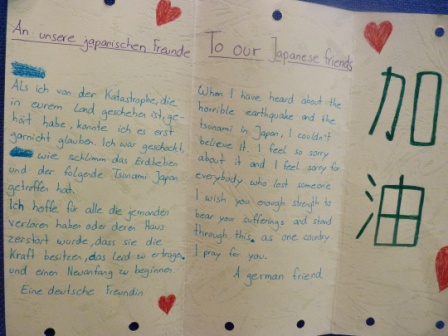 An unsere japanischen Freunde
Als ich von der Katastrophe, die
in eurem Land geschehen ist, ge-
hört habe, konnte ich es erst
garnicht glauben. Ich war geschockt,
wie schlimm das Erdbeben
und der folgende Tsunami Japan
getroffen hat.
Ich hoffe für alle die jemanden
verloren haben oder deren Haus
zerstört wurde, dass sie die
Kraft besitzen, das Leid zu ertragen
und einen Neuanfang zu beginnen.
Eine deutsche Freundin
To our Japanese friends
When I have heard about the
horrible earthquake and the
tsunami in Japan, I couldn't
believe it. I feel so sorry
about it and I feel sorry for
everybody who lost someone.
I wish you enough strength to
bear your sufferings and stand
through this as one country.
I pray for you.
A german friend
加
油